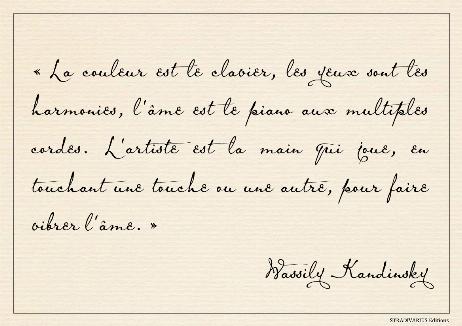 « La couleur est le clavier, les yeux sont les
harmonies, l'âme est le piano aux multiples
cordes. L'artiste est la main qui joue, en
touchant une touche ou une autre, pour faire
vibrer l'âme. »
Wassily Kandinsky
STRADIVARIUS Editions